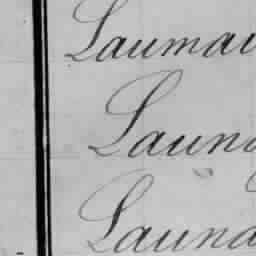 Lauma
Laun
Launa